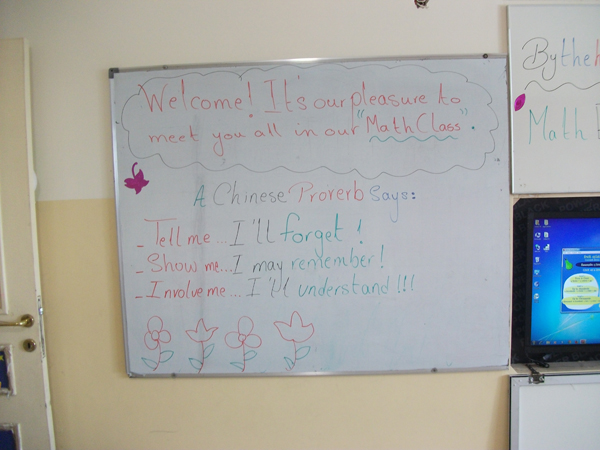 Welcome! It's our pleasure to
meet you all in our "Math Class".
A Chinese Proverb Says:
- Tell me... I'll forget!
- Show me... I may remember!
- Involve me... I'll understand!!!
Bythe
Math